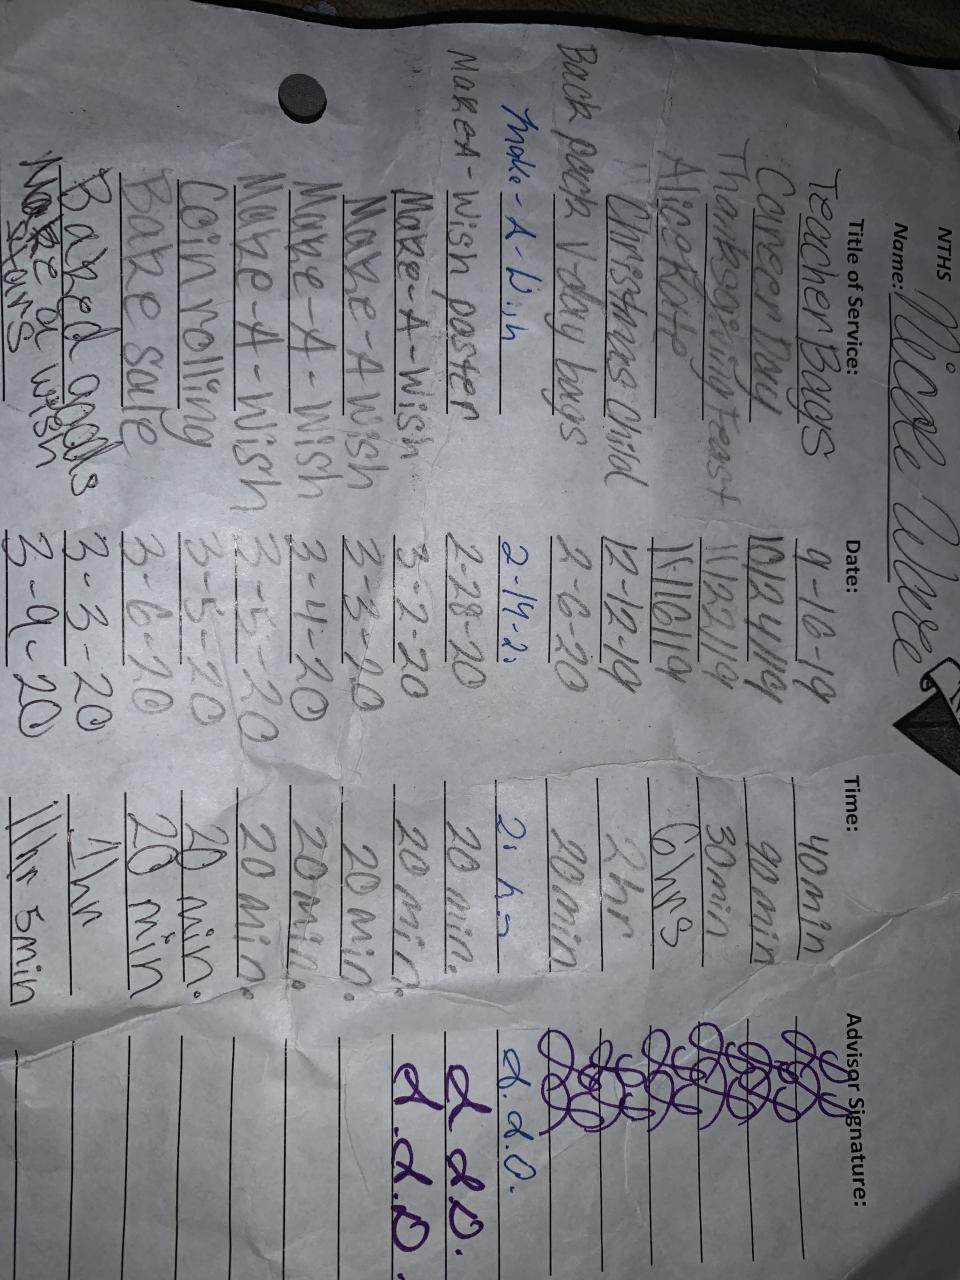 NTHS
Name: Nicole Ware
Title of Service: Date: Time: Advisor Signature:
Teacher Bags 9-16-19 40min
Career Day 10/24/19 90min
Thanksgiving Feast 11/22/19 30min
Alice Kate 11/16/19 6hrs
Christmas Child 12-12-19 2hr
Back pack V-day bags 2-6-20 20min
Make-A-Wish 2-14-2
Make A-Wish poster 2-28-20 20 min.
Make-A-Wish 3-2-20 20 min.
Make-A Wish 3-3-20 20 min.
Make-A-Wish 3-4-20 20min.
Make-A-Wish 3-5-20 20 min.
Coin rolling 3-5-20 20 min.
Bake Sale 3-6-20 20 min
Baked goods 3-3-20 1hr
Make a wish 3-9-20 5min
stars